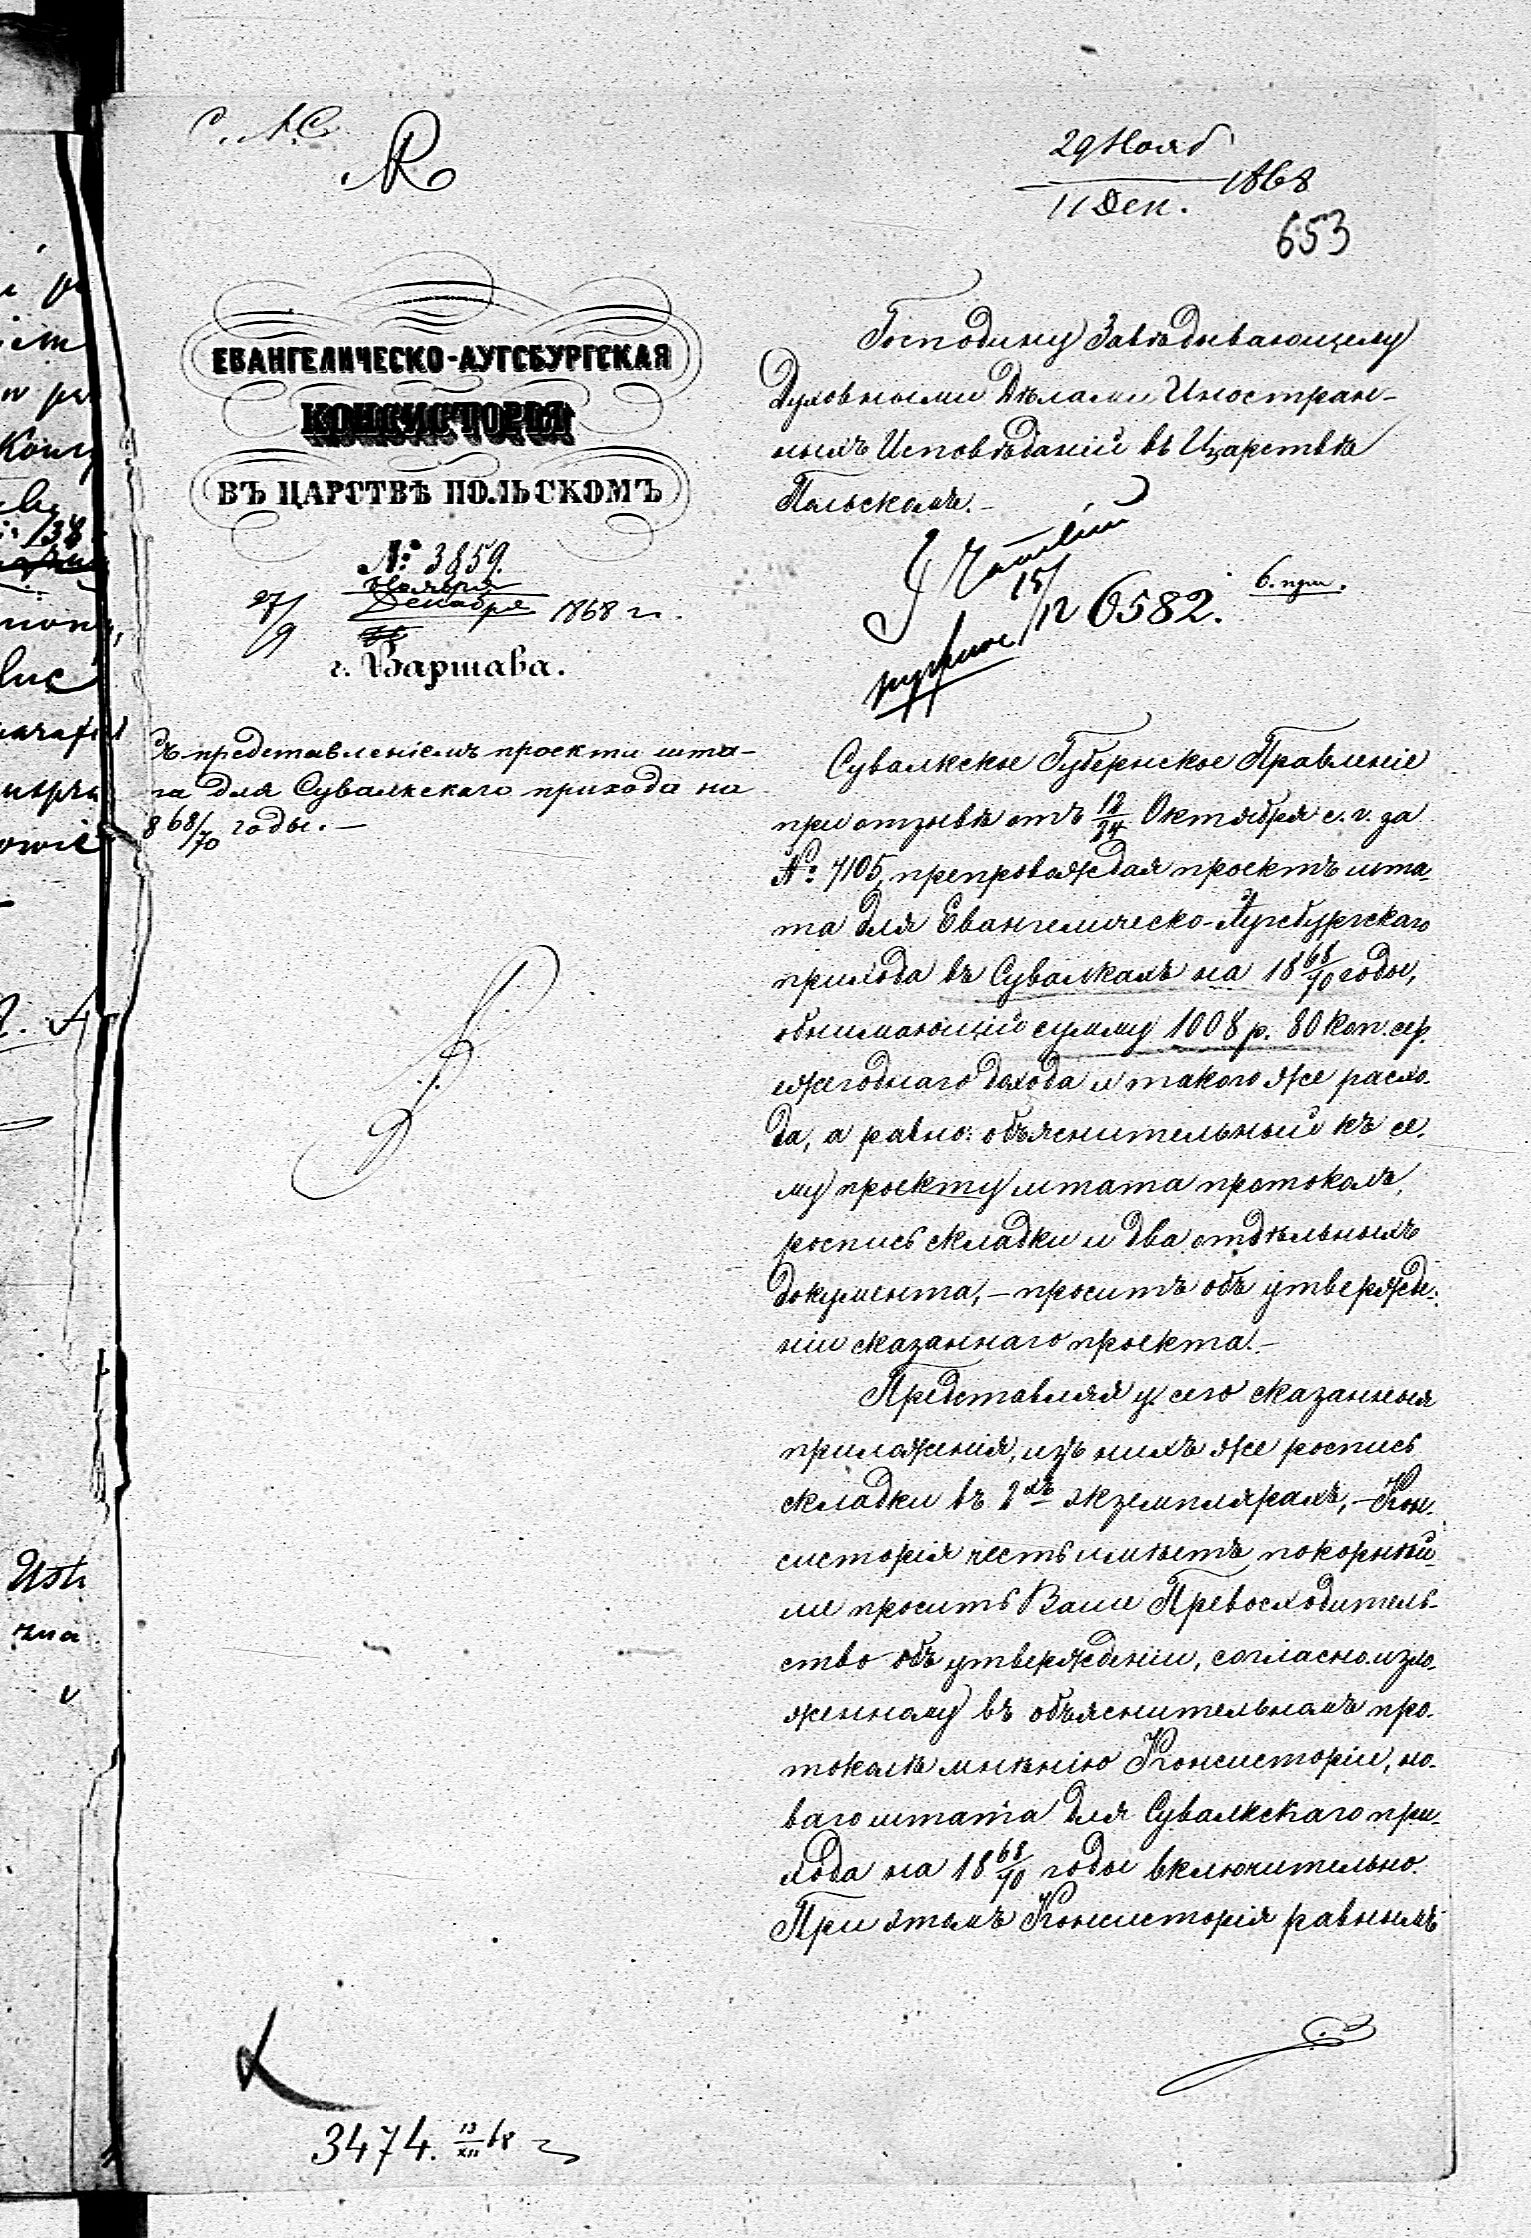 29 Нояб
11 Дек. 1868
653
ЕВАНГЕЛИЧЕСКО-АУГСБУРГСКАЯ
КОНСИСТОРІЯ
ВЪ ЦАРСТВѢ ПОЛЬСКОМЪ
№ 3859.
27/9 Ноября
Декабря 1868 г.
г. Варшава.
Съ представленіемъ проекта шта-
та для Сувалкскаго прихода на
18 68/70 годы.—
Господину Завѣдывающему
Духовными Дѣлами Иностран-
ныхъ Исповѣданій въ Царствѣ
Польскомъ.—
15/12 6582.
6. прил.
Сувалкское Губернское Правленіе
при отзывѣ отъ 12/24 Октября с. г. за
№ 7105, препровождая проектъ шта-
та для Евангелическо-Аугсбургскаго
прихода въ Сувалкахъ на 18 68/70 годы,
обнимающій сумму 1008 р. 80 коп. сер.
ежегоднаго дохода и такого же расхо-
да, а равно: объяснительный къ се-
му проекту штата протоколъ,
роспись складки и два отдѣльныхъ
документа,— проситъ объ утвержде-
ніи сказаннаго проекта.—
Представляя у сего сказанныя
приложенія, изъ нихъ же роспись
складки въ 2хъ экземплярахъ,— Кон-
систорія честь имѣетъ покорнѣй-
ше просить Ваше Превосходитель-
ство объ утвержденіи, согласно изло-
женному въ объяснительномъ про-
токолѣ мнѣнію Консисторіи, но-
ваго штата для Сувалкскаго при-
хода на 18 68/70 годы включительно.
При этомъ Консисторія равнымъ
3474. 13/XII 68